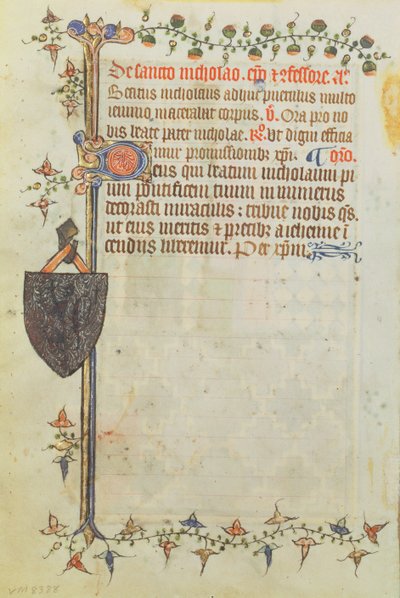 De sancto nicholao. ep̄o ⁊ ꝯfessore. añ.
Beatus nicholaus adhuc puerulus multo
ieiunio macerabat corpus. ℣. Ora pro no
bis beate pater nicholae. ℟. Ut digni efficia
mur promissionibꝫ xp̄i. Oꝛ̄o.
Deus qui beatum nicholaum pi
um pontificem tuum innumeris
decorasti miraculis : tribue nobis q̄s.
ut eius meritis ⁊ precibꝫ a iehenne ī
cendijs liberemur. Per xp̄m
VM 8388